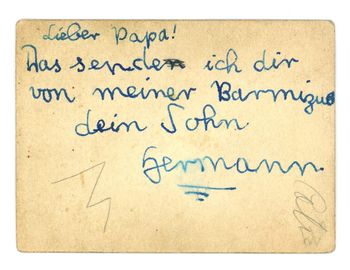 Lieber Papa!
Das sende ich dir
von meiner Barmizwe
dein Sohn
Hermann